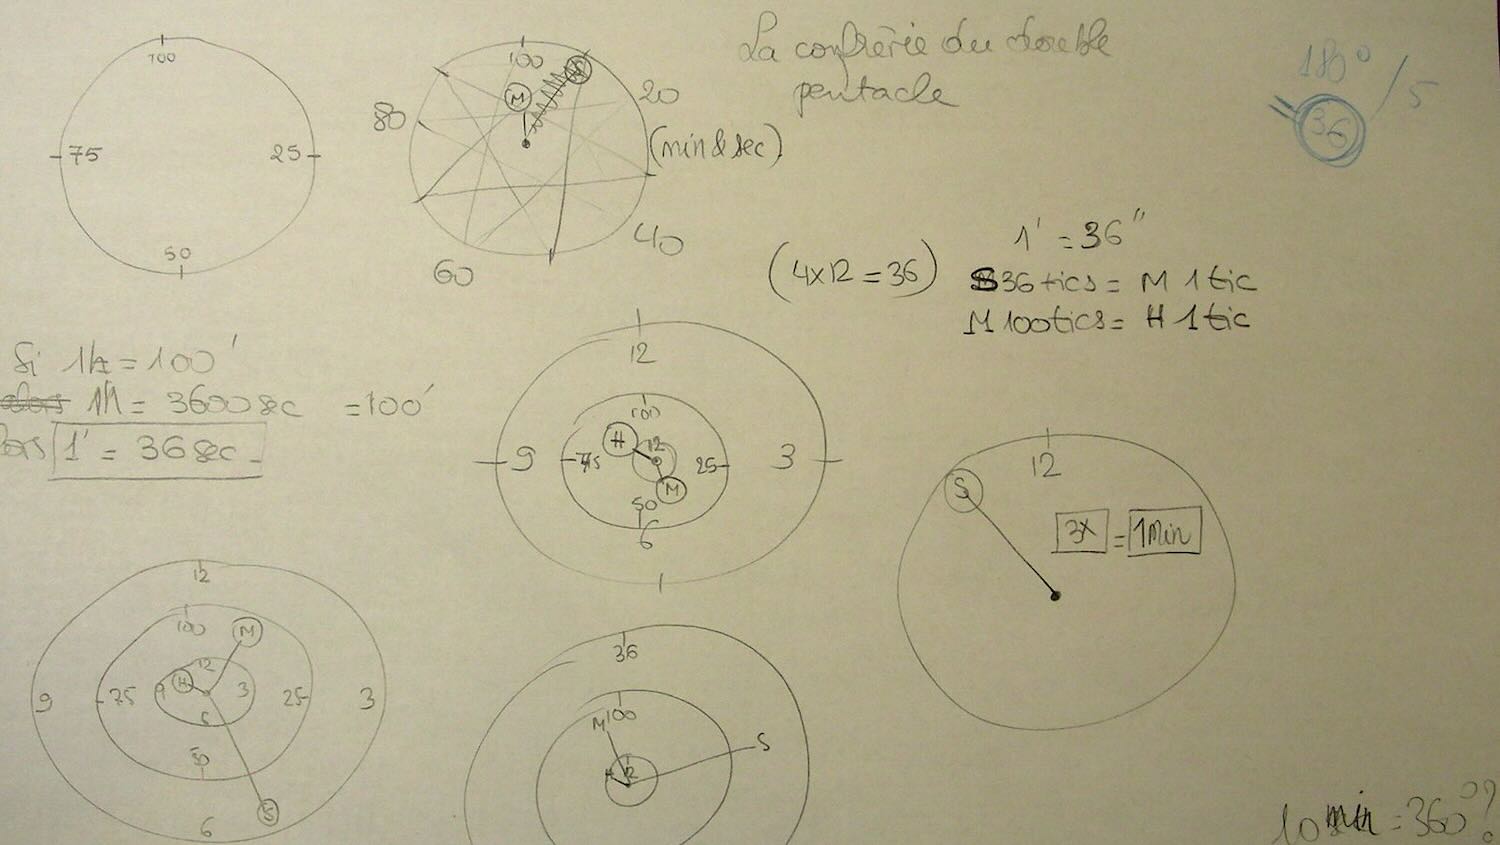 La confrérie du double
pentacle
180° / 5
36
100
75
25
50
100
M
80
20
(min & sec)
40
60
1' = 36"
(4x12 = 36)
S 36 tics = M 1 tic
M 100 tics = H 1 tic
Si 1h = 100'
alors 1h = 3600 sec = 100'
lors 1' = 36 sec
12
100
H
12
9
75
25
3
M
50
6
12
S
3x = 1 Min
12
100
M
12
H
9
75
9
3
25
3
6
50
S
6
36
100
M
S
H
12
10 min = 360°?